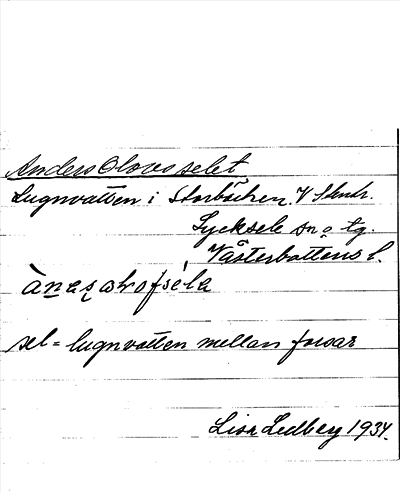 Anders Olovs selet
Lugnvatten i Storbäcken, V Stendr.
Lycksele sn o tg.
Västerbottens l.
sel = lugnvatten mellan forsar
Lisa Lidberg 1934.